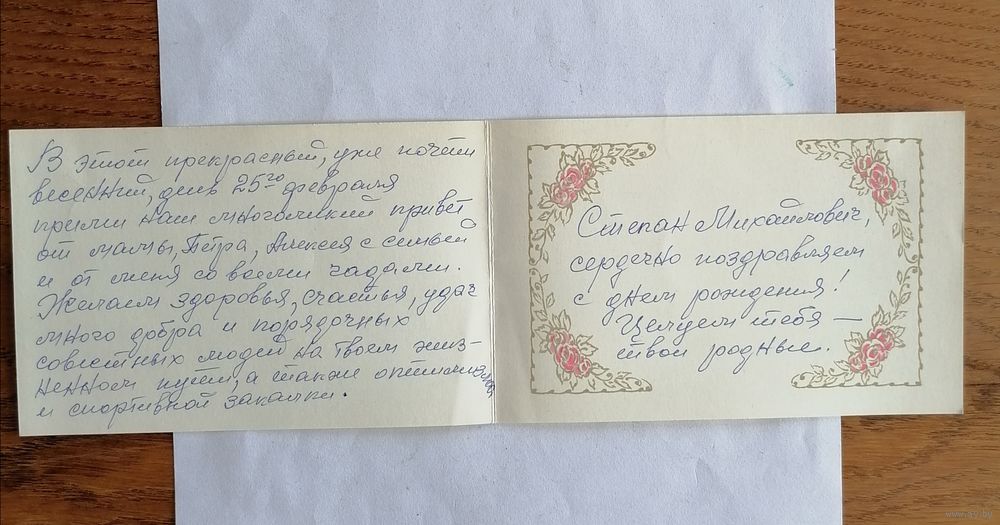 В этот прекрасный, уже почти
весенний, день 25го февраля
прими наш многоликий привет
от мамы, Петра, Алексея с семьёй
и от меня со всеми чадами.
Желаем здоровья, счастья, удач
много добра и порядочных
совестных людей на твоем жиз-
ненном пути, а также оптимизма
и спортивной закалки.
Степан Михайлович,
сердечно поздравляем
с днем рождения!
Целуем тебя —
твои родные.
www.ay.by